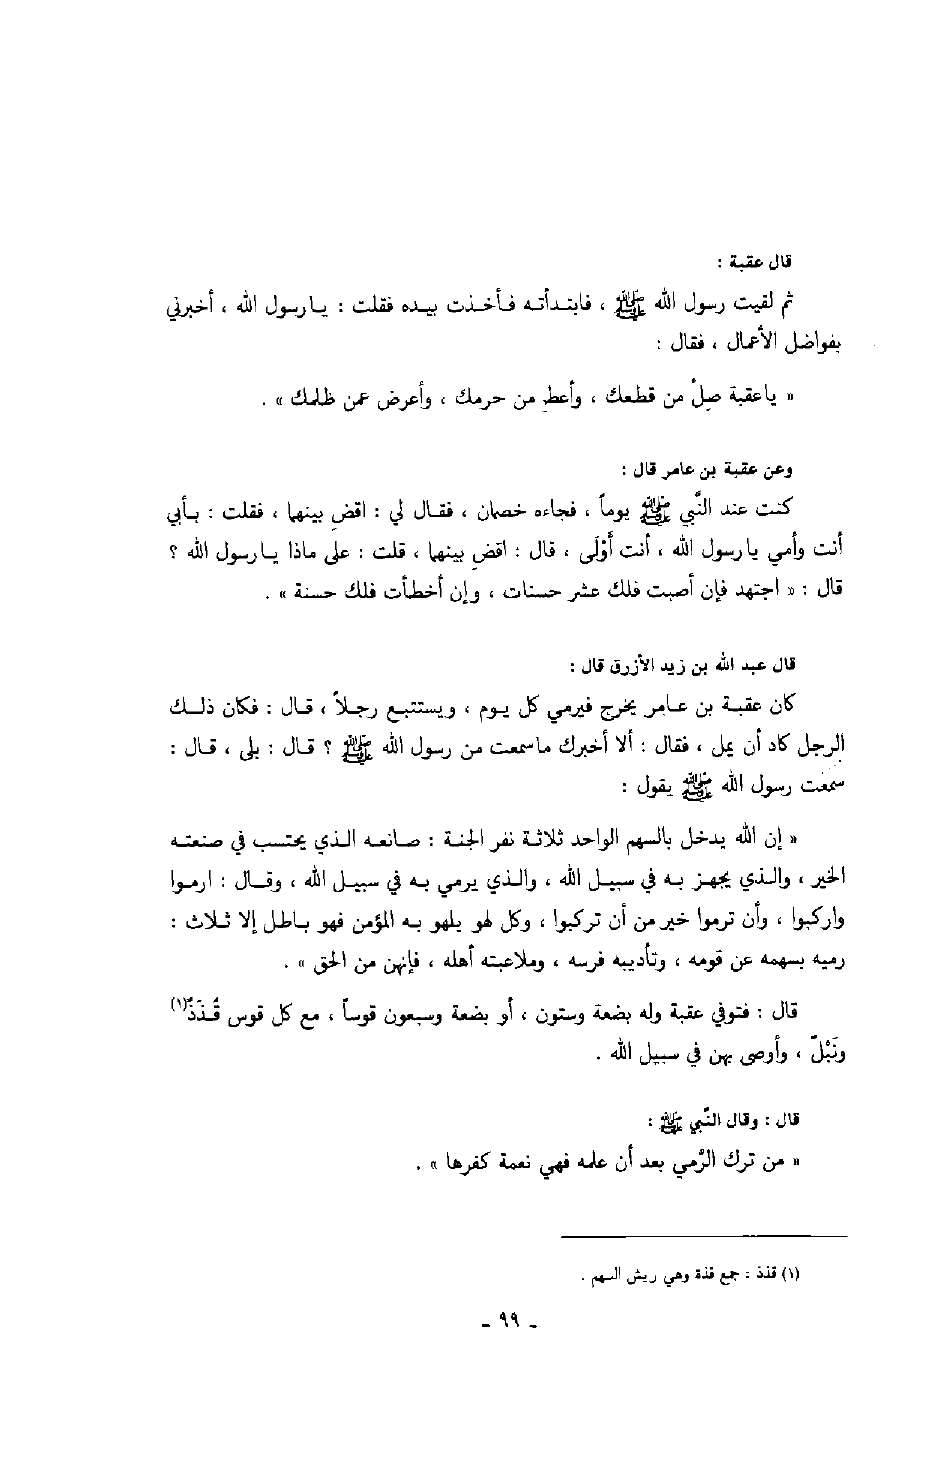 قال عقبة :
ثم لقيت رسول الله ﷺ ، فابتدأته فأخذت بيده فقلت : يارسول الله ، أخبرني
بفواضل الأعمال ، فقال :
« ياعقبة صِلْ من قطعك ، وأعطِ من حرمك ، وأعرض عمن ظلمك » .
وعن عقبة بن عامر قال :
كنت عند النَّبي ﷺ يوماً ، فجاءه خصمان ، فقال لي : اقضِ بينهما ، فقلت : بأبي
أنت وأمي يارسول الله ، أنت أَوْلَى ، قال : اقضِ بينهما ، قلت : على ماذا يارسول الله ؟
قال : « اجتهد فإن أصبت فلك عشر حسنات ، وإن أخطأت فلك حسنة » .
قال عبد الله بن زيد الأزرق قال :
كان عقبة بن عامر يخرج فيرمي كل يوم ، ويستتبع رجلاً ، قال : فكان ذلك
الرجل كاد أن يمل ، فقال : ألا أخبرك ماسمعت من رسول الله ﷺ ؟ قال : بلى ، قال :
سمعت رسول الله ﷺ يقول :
« إن الله يدخل بالسهم الواحد ثلاثة نفر الجنة : صانعه الذي يحتسب في صنعته
الخير ، والذي يجهز به في سبيل الله ، والذي يرمي به في سبيل الله ، وقال : ارموا
واركبوا ، وأن ترموا خير من أن تركبوا ، وكل لهو يلهو به المؤمن فهو باطل إلا ثلاث :
رميه بسهمه عن قوسه ، وتأديبه فرسه ، وملاعبته أهله ، فإنهن من الحق » .
قال : فتوفي عقبة وله بضعة وستون ، أو بضعة وسبعون قوساً ، مع كل قوس قُذَذٌ(١)
ونَبْلٌ ، وأوصى بهن في سبيل الله .
قال : وقال النَّبي ﷺ :
« من ترك الرَّمي بعد أن علمه فهي نعمة كفرها » .
(١) قذذ : جمع قذة وهي ريش السهم .
- ٩٩ -